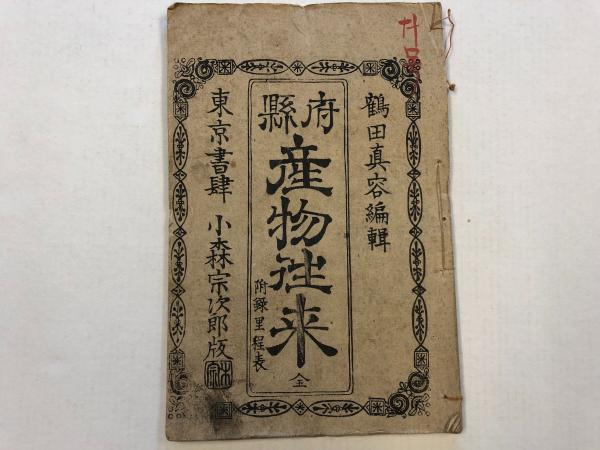 鶴田真容編輯
府縣
産物往来 全
附録里程表
東京書肆 小森宗次郎版